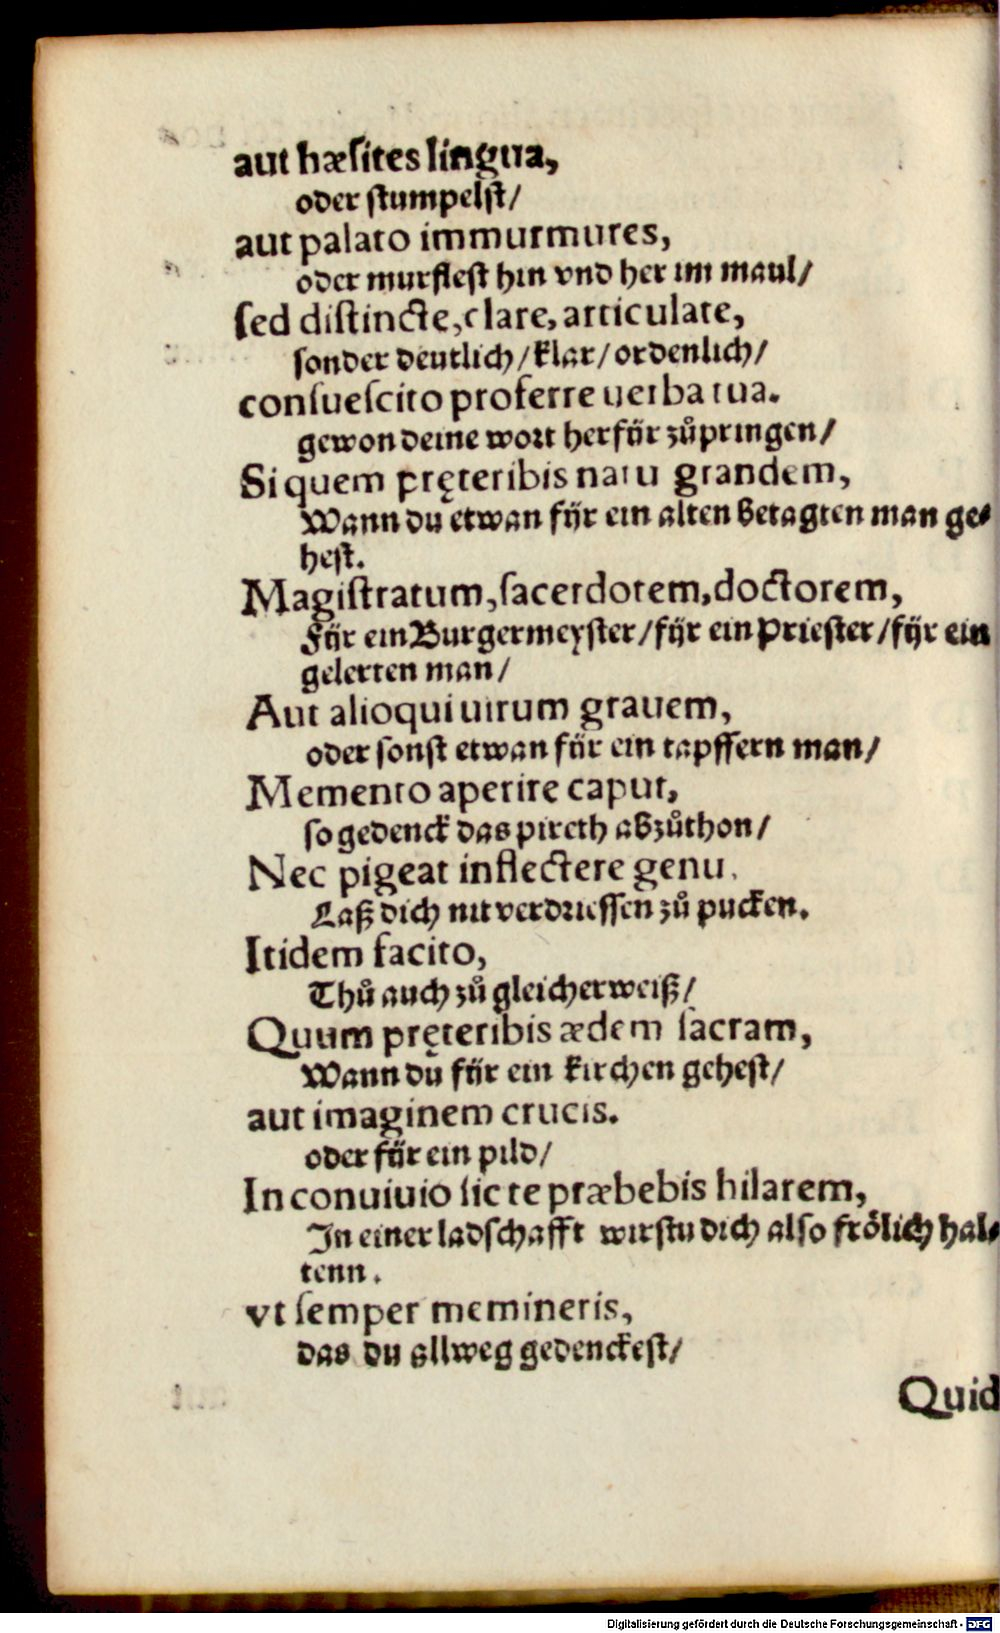 aut hæsites lingua,
oder stumpelst/
aut palato immurmures,
oder murflest hin vnd her im maul/
sed distincte, clare, articulate,
sonder deutlich/klar/ordenlich/
consuescito proferre uerba tua.
gewon deine wort herfür zůpringen/
Si quem pręteribis natu grandem,
Wann du etwan für ein alten betagten man ge⸗
hest.
Magistratum, sacerdotem, doctorem,
Für ein Burgermeyster/für ein Priester/für ein
gelerten man/
Aut alioqui uirum grauem,
oder sonst etwan für ein tapffern man/
Memento aperire caput,
so gedenck das pireth abzůthon/
Nec pigeat inflectere genu.
Laß dich nit verdriessen zů pucken.
Itidem facito,
Thů auch zů gleicher weiß/
Quum pręteribis ædem sacram,
Wann du für ein kirchen gehest/
aut imaginem crucis.
oder für ein pild/
In conuiuio sic te præbebis hilarem,
In einer ladschafft wirstu dich also frölich hal⸗
tenn.
vt semper memineris,
das du allweg gedenckest/
Quid
Digitalisierung gefördert durch die Deutsche Forschungsgemeinschaft - DFG